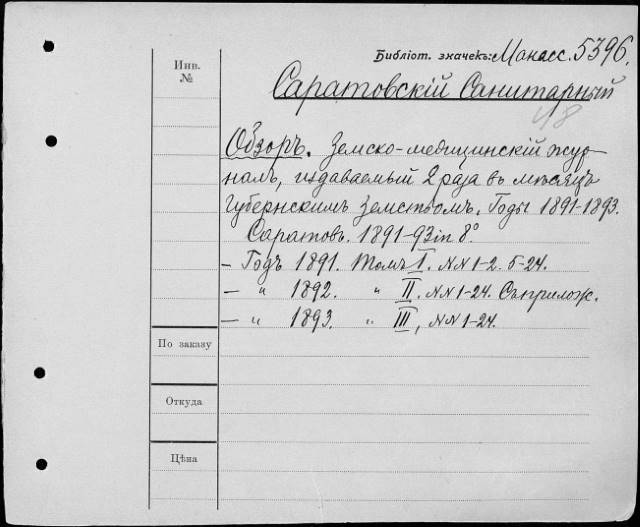 Библіот. значекъ: Манасс. 5396.
Инв.
№
Саратовскій Санитарный
48
Обзоръ. Земско-медицинскій жур-
налъ, издаваемый 2 раза въ мѣсяцъ
Губернскимъ Земствомъ. Годы 1891-1893.
Саратовъ. 1891-93 in 8°
- Годъ 1891. Томъ I. NN 1-2. 5-24.
- " 1892. " II. NN 1-24. Съ прилож.
- " 1893. " III, NN 1-24.
По заказу
Откуда
Цѣна